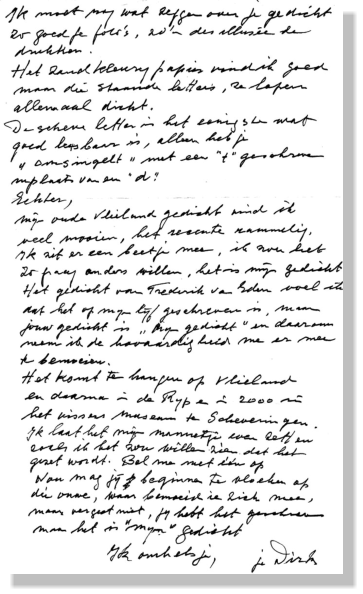 Ik moet nog wat zeggen over je gedicht
zo goed je foto's, zo'n desillusie de
drukken.
Het zandkleurig papier vind ik goed
maar die staande letters, ze lopen
allemaal dicht.
De schene letter is het eenigste wat
goed leesbaar is, alleen heb je
"omsingelt" met een "t" geschreven
inplaats van en "d".
Echter,
mijn oude Vlieland gedicht vind ik
veel mooier, het recente rammelig.
Ik zit er een beetje mee, ik zou het
zo graag anders willen, het is mijn gedicht
Het gedicht van Frederik van Eden voel ik
dat het op mijn lijf geschreven is, maar
jouw gedicht is "Mijn gedicht" en daarom
neem ik de hovaardigheid me er mee
te bemoeien.
Het komt te hangen op Vlieland
en daarna in de Ryp en in 2000 in
het vissers museum te Scheveningen.
Ik laat het mijn mannetje even zetten
zoals ik het zou willen zien dat het
gezet wordt. Bel me met één op
Nou mag jij beginnen te vloeken op
die vrouw, waar bemoeid ze zich mee,
maar vergeet niet, jij hebt het geschreven
maar het is "mijn" gedicht
Ik omhels je, je Dirk